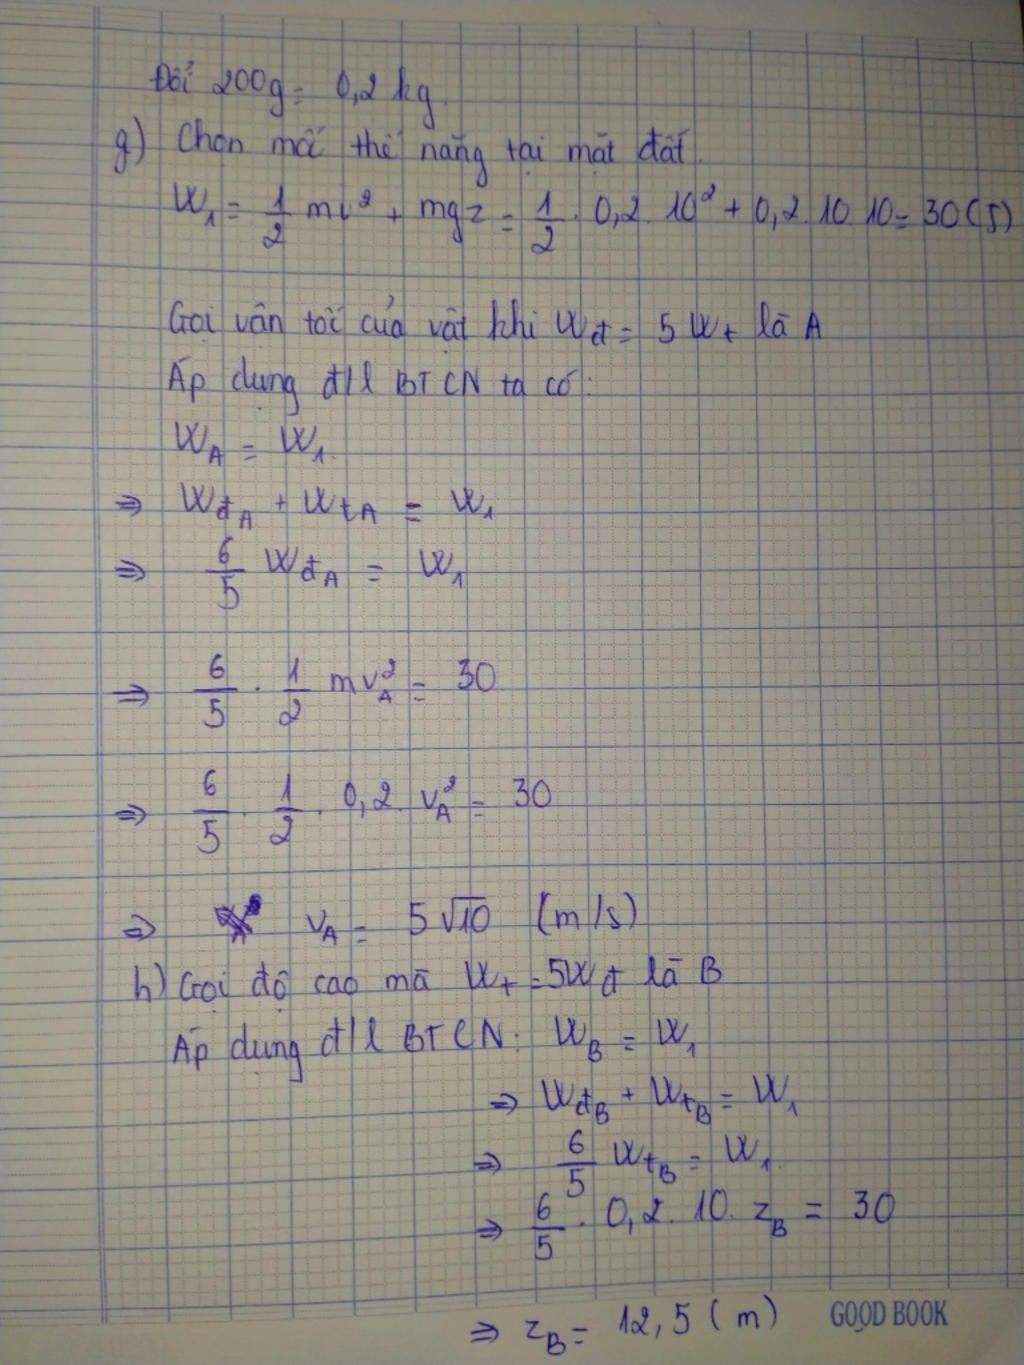 Đổi 200g = 0,2 kg
g) Chọn mốc thế năng tại mặt đất.
W₁ = 1/2 mv² + mgz = 1/2 . 0,2 . 10² + 0,2 10 10 = 30 (J)
Gọi vận tốc của vật khi Wđ = 5 Wt là A
Áp dụng đ/l BTCN ta có:
W_A = W₁.
⇒ Wđ_A + Wt_A = W₁
⇒ 6/5 Wđ_A = W₁
⇒ 6/5 . 1/2 mv_A² = 30
⇒ 6/5 . 1/2 . 0,2 . v_A² = 30
⇒ v_A = 5√10 (m/s)
h) Gọi độ cao mà Wt = 5Wđ là B
Áp dụng đ/l BTCN: W_B = W₁
⇒ Wđ_B + Wt_B = W₁
⇒ 6/5 Wt_B = W₁
⇒ 6/5 . 0,2 . 10 . z_B = 30
⇒ z_B = 12,5 (m)
GOOD BOOK